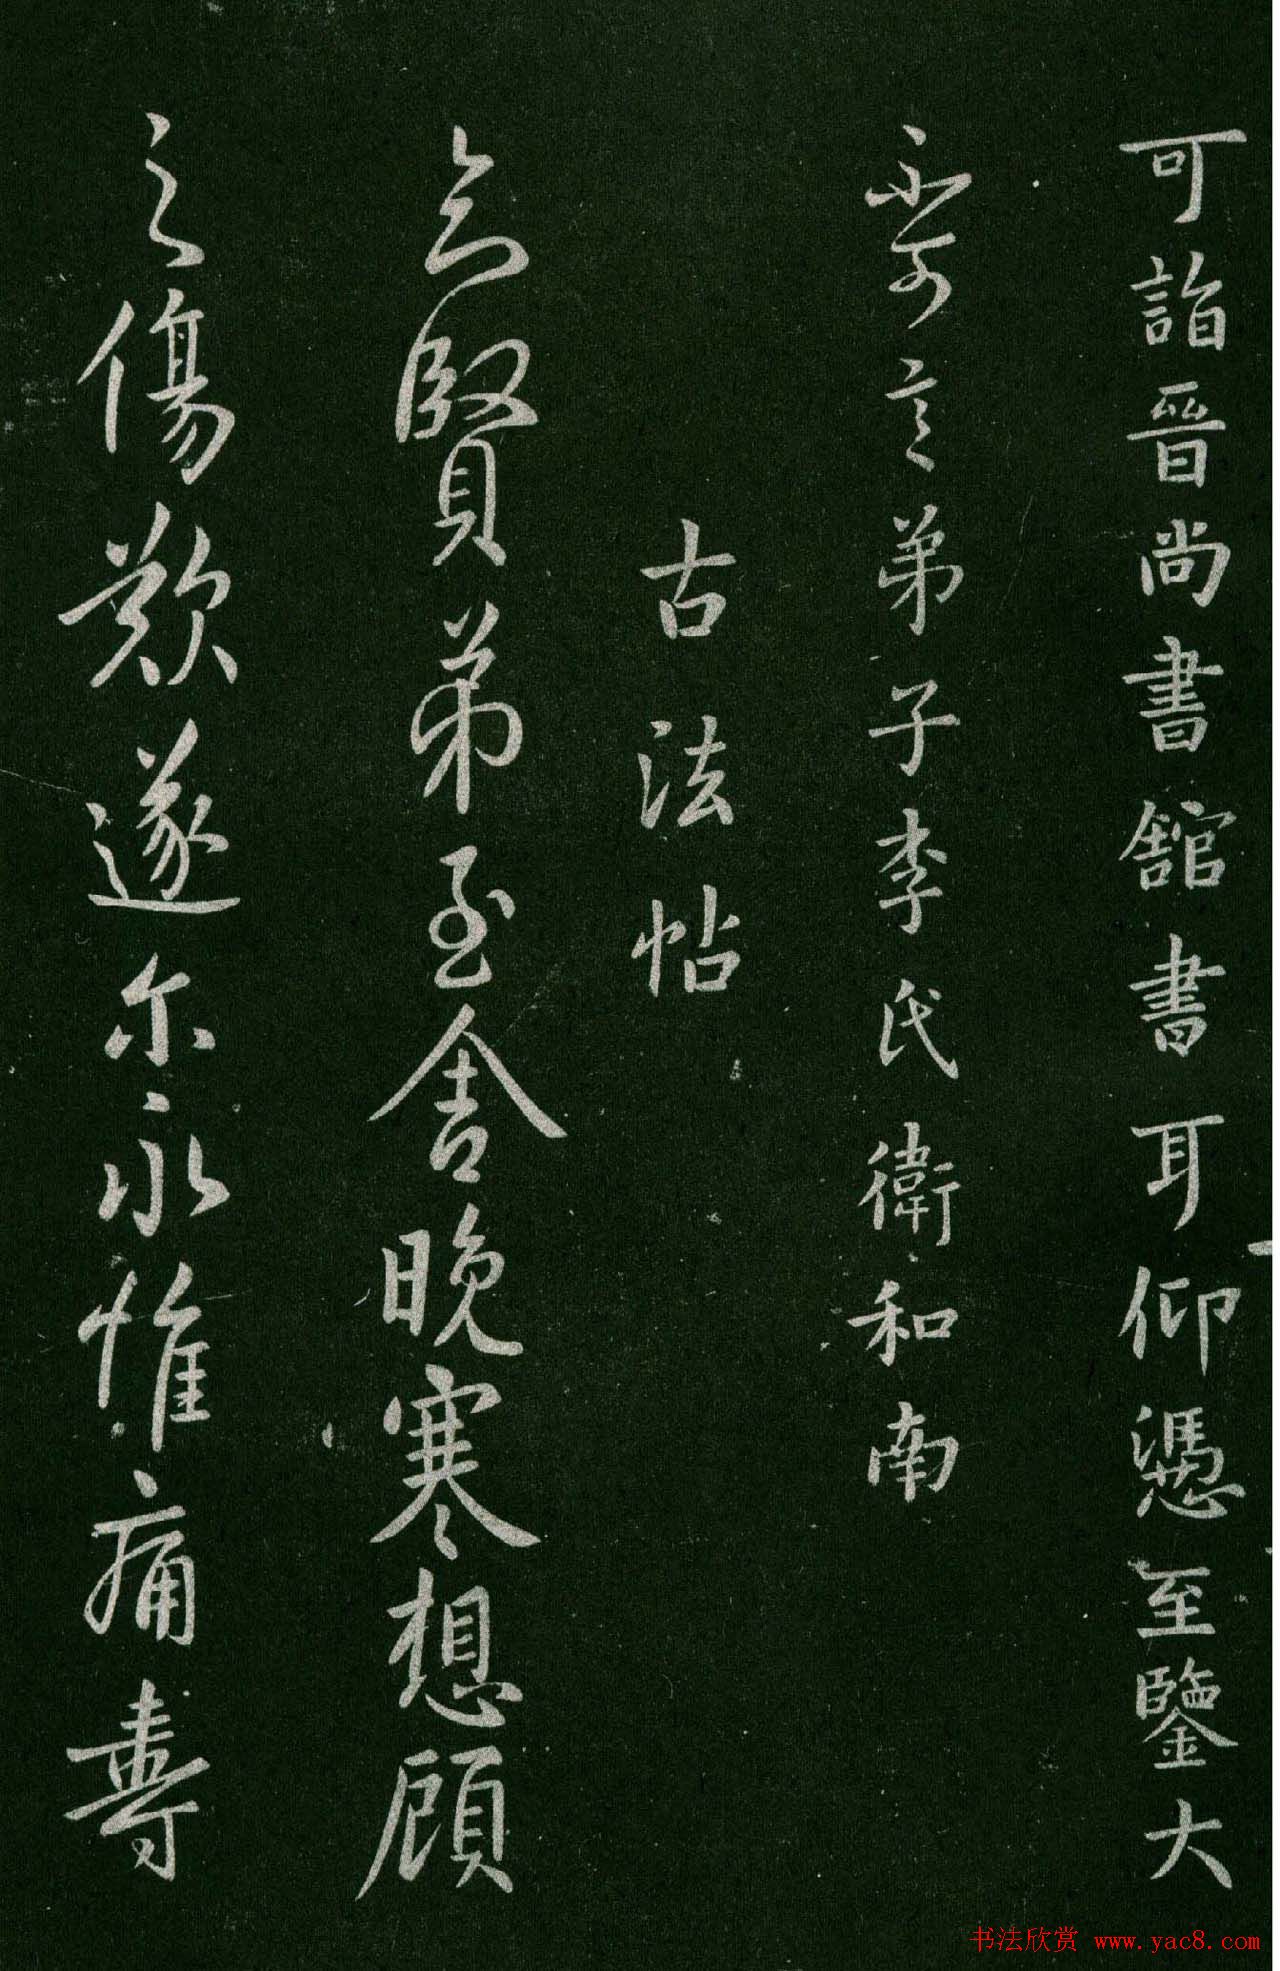 可詣晉尚書舘書耳仰憑至鑒大
不可言弟子李氏衛和南
古法帖
知賢弟至舍晚寒想顧
之傷歎遂尔永惟痛壽
书法欣赏 www.yac8.com